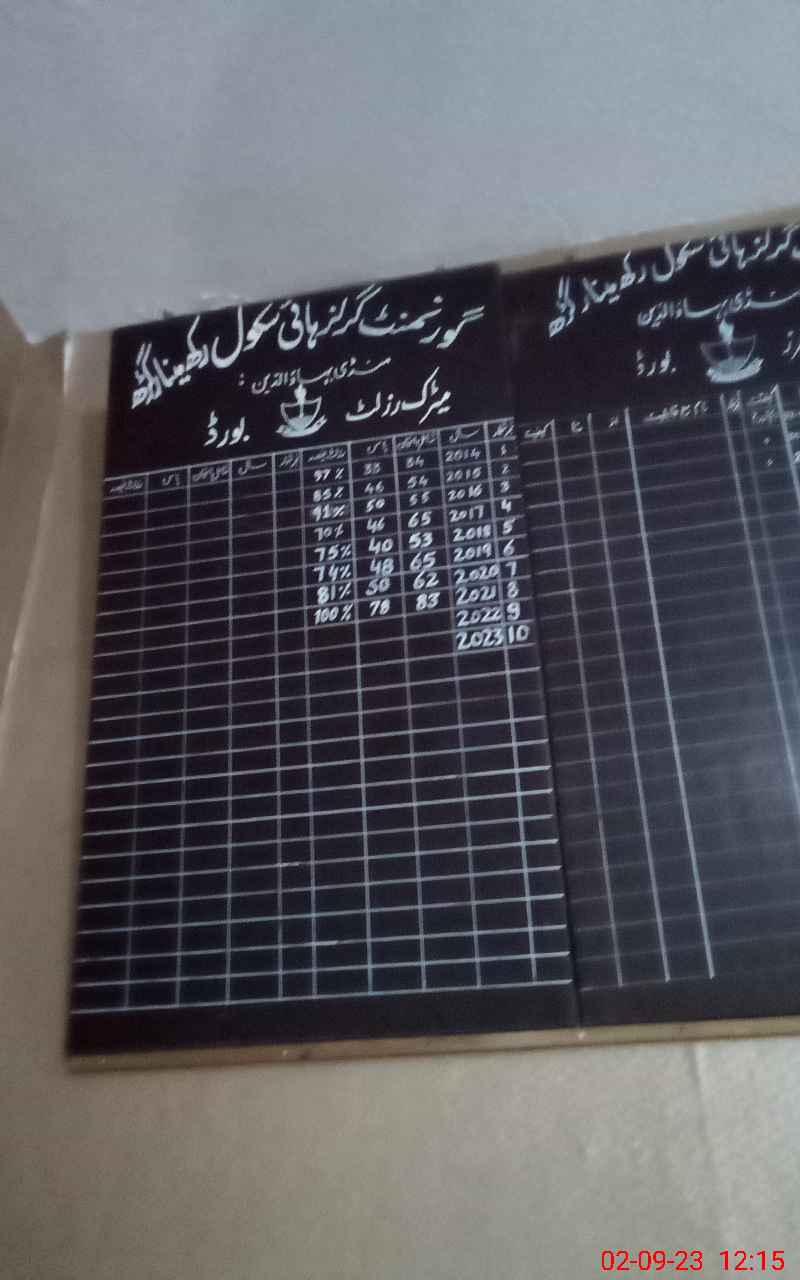 گورنمنٹ گرلز ہائی سکول رکھ مینار
منڈی بہاؤالدین
میٹرک رزلٹ بورڈ
نمبر شمار سال شامل امتحان پاس نمبر شمار سال شامل امتحان پاس
1 2014 34 33 97%
2 2015 54 46 85%
3 2016 55 50 91%
4 2017 65 46 70%
5 2018 53 40 75%
6 2019 65 48 74%
7 2020 62 50 81%
8 2021 83 78 100%
9 2022
10 2023
گرلز ہائی سکول رکھ مینار
منڈی بہاؤالدین
بورڈ
نام مع قابلیت تا کیفیت
02-09-23 12:15